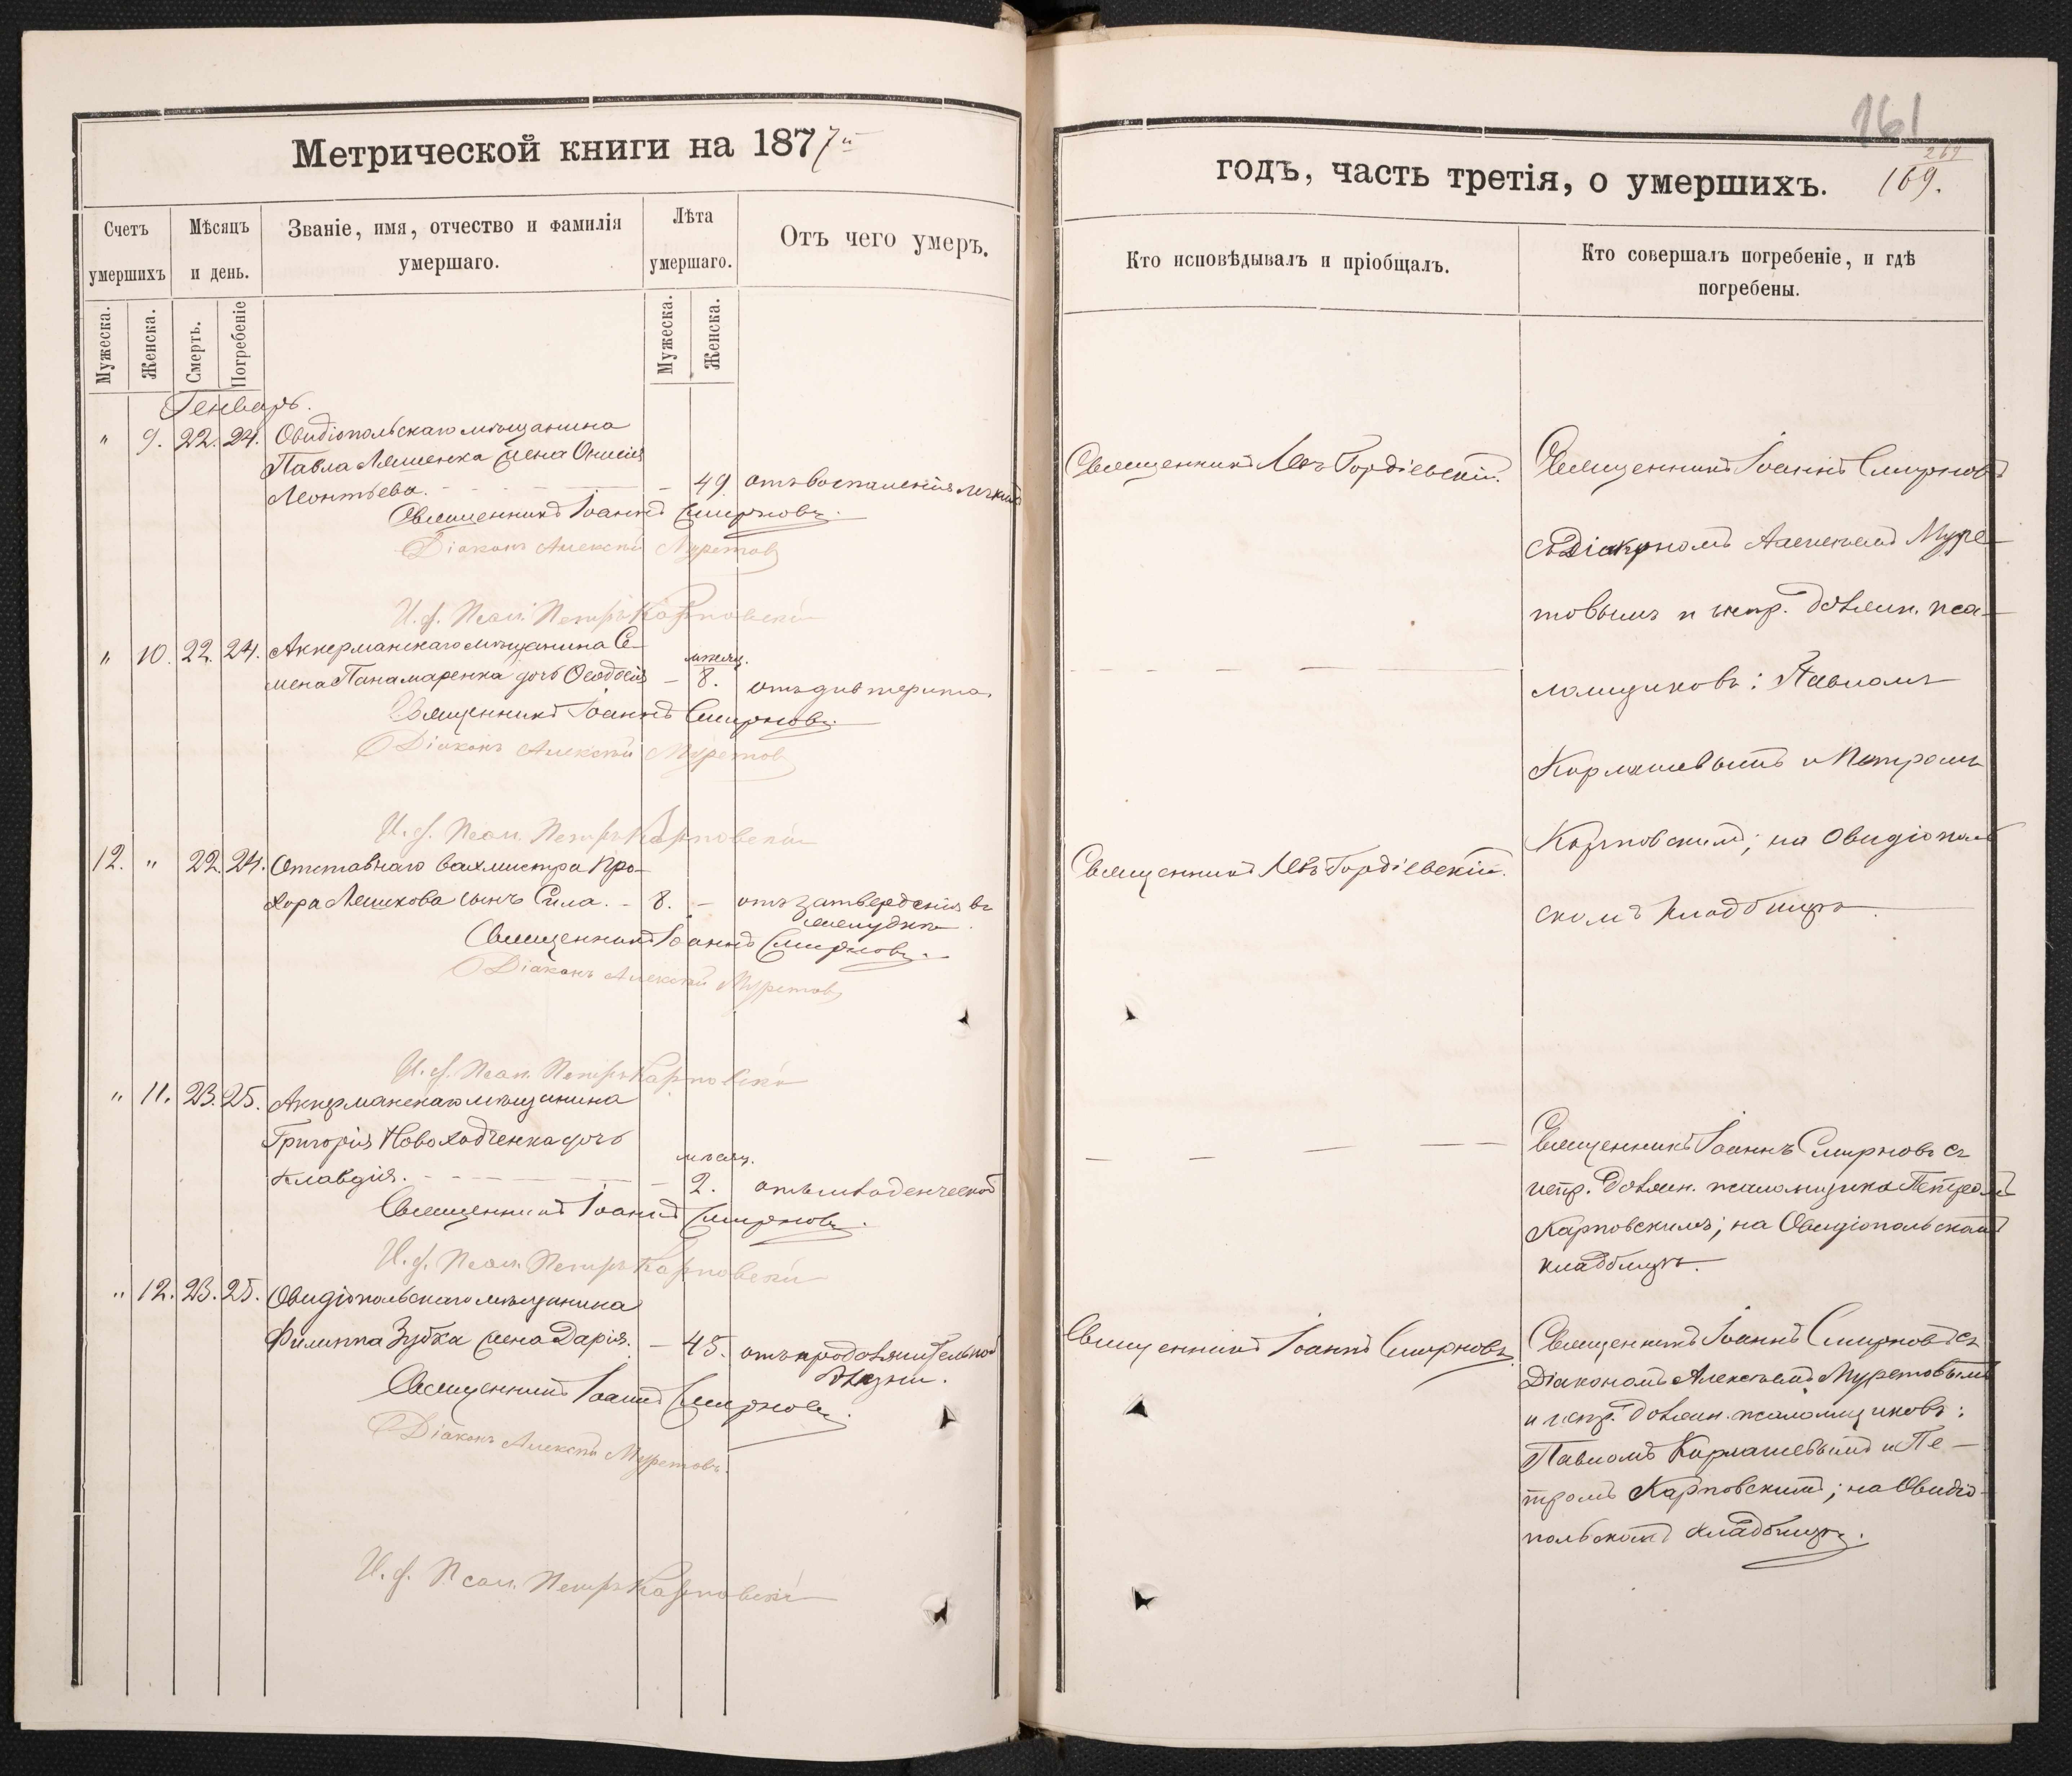 Метрической книги на 1877й
Счетъ умершихъ
Мѣсяцъ и день.
Званіе, имя, отчество и фамилія умершаго.
Лѣта умершаго.
Отъ чего умеръ.
Мужеска.
Женска.
Смерть.
Погребеніе
Мужеска.
Женска.
Генварь.
" 9. 22. 24. Овидіопольскаго мѣщанина
Павла Ляшенка жена Онисія
Леонтьева. 49 отъ воспаленія легкихъ
Священникъ Іоаннъ Смирновъ.
Діаконъ Алексѣй Муретовъ
И. д. Псал. Петръ Карповскій
" 10. 22. 24. Аккерманскаго мѣщанина Се-
мена Панамаренка дочь Ѳеодосія – мѣсяц. 8. отъ дифтерита.
Священникъ Іоаннъ Смирновъ.
Діаконъ Алексѣй Муретовъ
И. д. Псал. Петръ Карповскій
12. " 22. 24. Отставнаго вахмистра Про-
хора Лешкова сынъ Сила. – 8. – отъ затвердѣнія въ
желудкѣ.
Священникъ Іоаннъ Смирновъ.
Діаконъ Алексѣй Муретовъ
И. д. Псал. Петръ Карповскій
" 11. 23. 25. Аккерманскаго мѣщанина
Григорія Новоходченка дочь
Клавдія. – мѣсяц. 2. отъ младенческой
Священникъ Іоаннъ Смирновъ.
И. д. Псал. Петръ Карповскій
" 12. 23. 25. Овидіопольскаго мѣщанина
Филиппа Зубка жена Дарія. – 45. отъ продолжительной
болѣзни.
Священникъ Іоаннъ Смирновъ.
Діаконъ Алексѣй Муретовъ.
И. д. Псал. Петръ Карповскій
161
269
169.
годъ, часть третія, о умершихъ.
Кто исповѣдывалъ и пріобщалъ.
Кто совершалъ погребеніе, и гдѣ
погребены.
Священникъ Левъ Гордіевскій.
Священникъ Іоаннъ Смирновъ
съ Діакономъ Алексѣемъ Муре-
товымъ и испр. должн. пса-
ломщиковъ: Павломъ
Кормашевымъ и Петромъ
Карповскимъ; на Овидіополь-
скомъ кладбищѣ.
Священникъ Левъ Гордіевскій.
Священникъ Іоаннъ Смирновъ съ
испр. должн. псаломщика Петромъ
Карповскимъ; на Овидіопольскомъ
кладбищѣ.
Священникъ Іоаннъ Смирновъ
Священникъ Іоаннъ Смирновъ съ
Діакономъ Алексѣемъ Муретовымъ
и испр. должн. псаломщиковъ:
Павломъ Кормашевымъ и Пе-
тромъ Карповскимъ; на Овидіо-
польскомъ кладбищѣ.